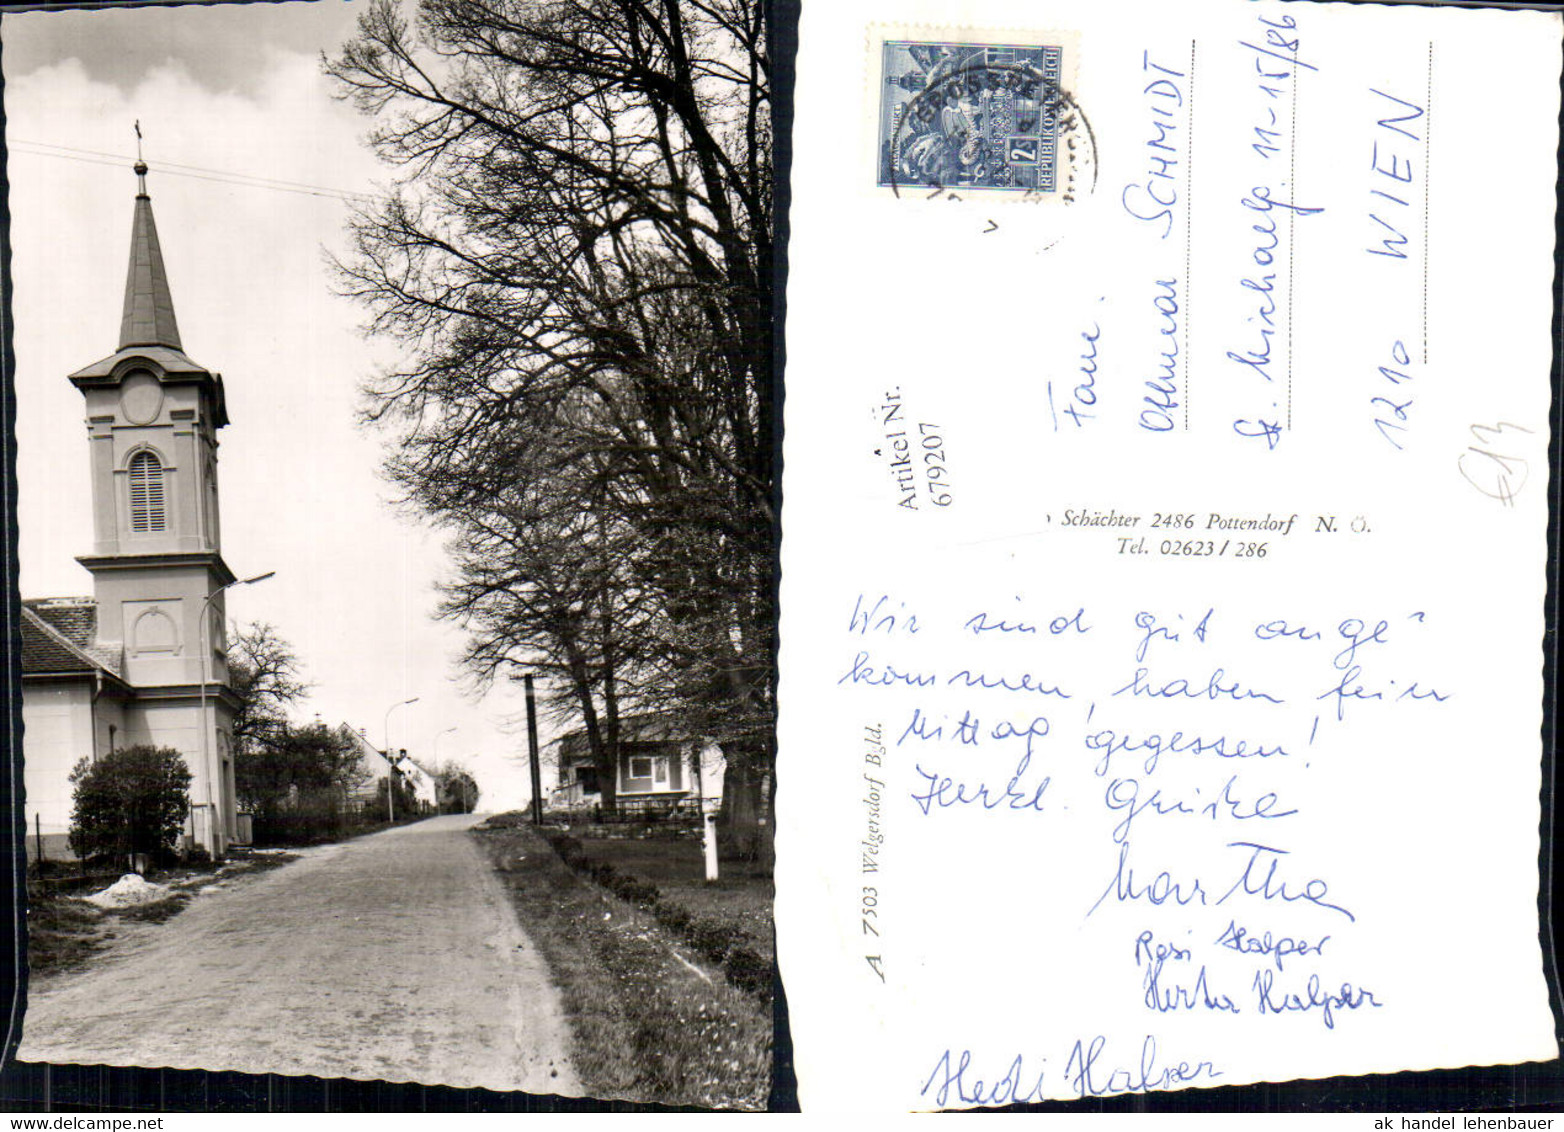 2
REPUBLIK ÖSTERREICH
Fam.
Othmar SCHMIDT
11-15/86
1210 WIEN
Artikel Nr.
679207
£13
Schächter 2486 Pottendorf N. Ö.
Tel. 02623/286
A 7503 Welgersdorf Bgld.
Wir sind gut ange"
kommen, haben fein
Mittag gegessen!
Herzl. Grüße
Martha
Resi Halper
Herta Halper
Hedi Halper
ak handel lehenbauer